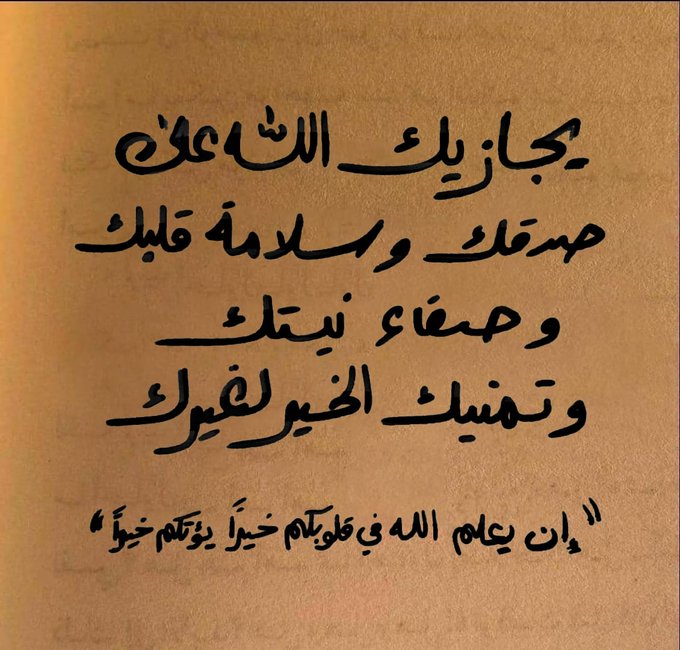 يجازيك الله على
صدقك وسلامة قلبك
وصفاء نيتك
وتمنيك الخير لغيرك
"إن يعلم الله في قلوبكم خيرًا يؤتكم خيرًا"